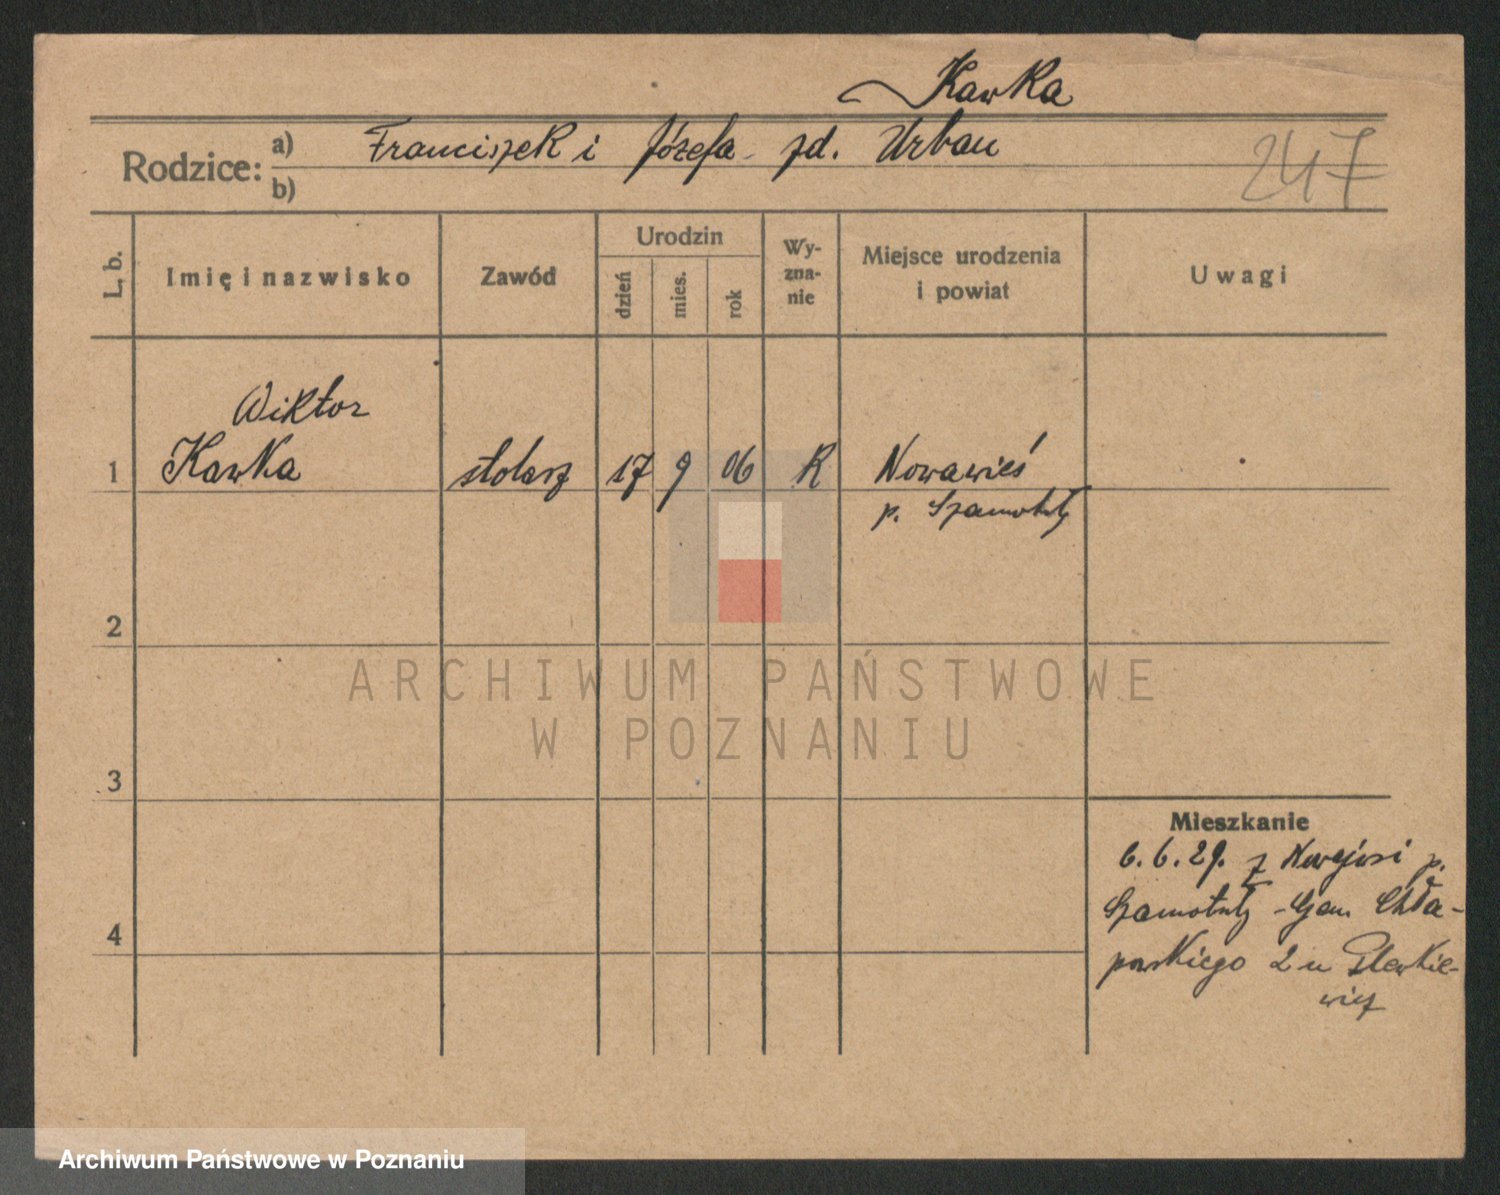 Kawka
Rodzice: a) Franciszek i Józefa zd. Urban
b)
247
L. b.
Imię i nazwisko
Zawód
Urodzin
dzień
mies.
rok
Wy-
zna-
nie
Miejsce urodzenia
i powiat
Uwagi
Wiktor
1 Kawka stolarz 17 9 06 R Nowawieś
p. Szamotuły
2
3
4
ARCHIWUM PAŃSTWOWE
W POZNANIU
Mieszkanie
6.6.29. z Nowejwsi p.
Szamotuły - Gen. Chła-
powskiego 2 u
wicz
Archiwum Państwowe w Poznaniu